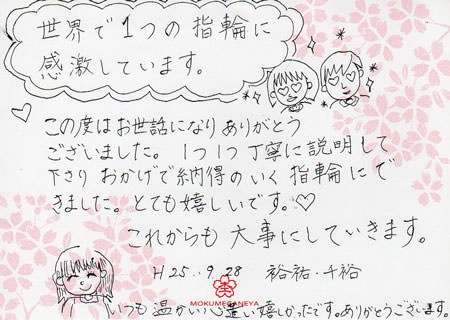 世界で1つの指輪に
感激しています。
この度はお世話になりありがとう
ございました。1つ1つ丁寧に説明して
下さり おかげで納得のいく指輪にで
きました。とても嬉しいです。♡
これからも大事にしていきます。
H25..9.28 裕祐・千裕
MOKUMEGANEYA
いつも温かい心遣い嬉しかったです。ありがとうございます。